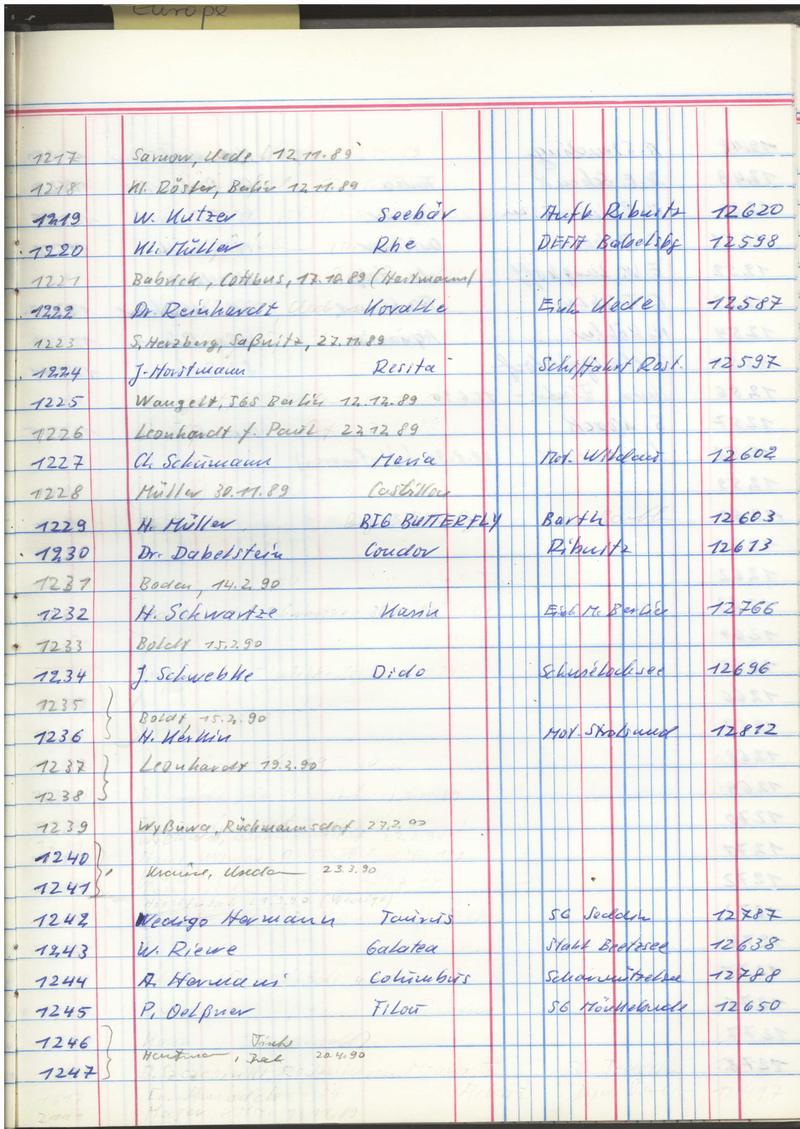 Europe
1217 Sarnow, Uede 12.11.89
1218 Kl. Röster, Berlin 12.11.89
1219 W. Kutzer Seebär Aufb Ribnitz 12620
1220 Kl. Müller Rhe DEFA Babelsbg 12598
1221 Babick, Cottbus, 17.10.89 (Hartmann)
1222 Dr. Reinhardt Koralle Einh Uede 12587
1223 S. Herzberg, Saßnitz, 27.11.89
1224 J. Horstmann Resita Schiffahrt Rost. 12597
1225 Wangelt, SGS Berlin 12.12.89
1226 Leonhardt f. Paul 27.12.89
1227 Ch. Schümann Maria Mot. 12602
1228 Müller 30.11.89
1229 H. Müller BIG BUTTERFLY Barth 12603
1230 Dr. Dabelstein Condor Ribnitz 12613
1231 Boden, 14.2.90
1232 H. Schwartze Karin Einh M. Berlin 12766
1233 Boldt 15.2.90
1234 J. Schwebke Dido 12696
1235
Boldt, 15.2.90
1236 H. Mot. Stralsund 12812
1237 Leonhardt 19.2.90
1238
1239 27.2.90
1240
Krause, 23.3.90
1241
1242 Wedigo Hermann SG Seddin 12787
1243 W. Riewe Galatea Stahl Beetzsee 12638
1244 A. Hermann Columbus Scharmützelsee 12788
1245 P. Oelßner Filou SG 12650
1246
20.4.90
1247